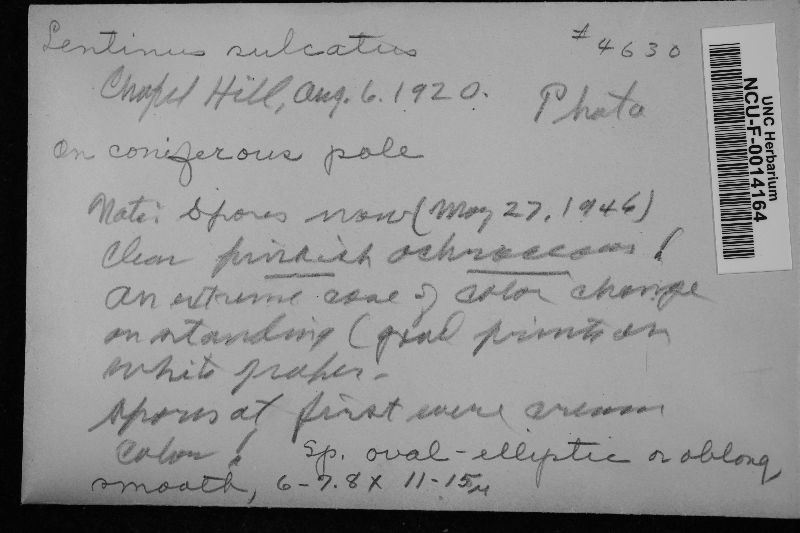 Lentinus sulcatus #4630
Chapel Hill, Aug. 6. 1920. Photo
On coniferous pole
Note: Spores now (May 27, 1946)
clear pinkish ochraceous!
An extreme case of color change
on standing (good prints on
white paper -
Spores at first were cream
color! Sp. oval-elliptic or oblong,
smooth, 6-7.8 x 11-15µ
UNC Herbarium
NCU-F-0014164